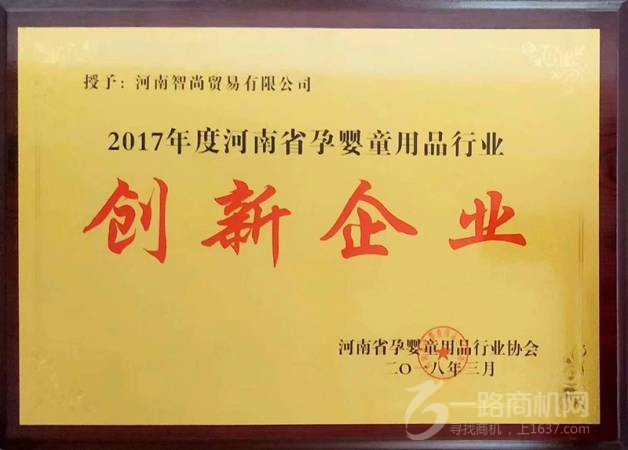 授予：河南智尚贸易有限公司
2017年度河南省孕婴童用品行业
创新企业
河南省孕婴童用品行业协会
二〇一八年三月
一路商机网
寻找商机，上1637.com